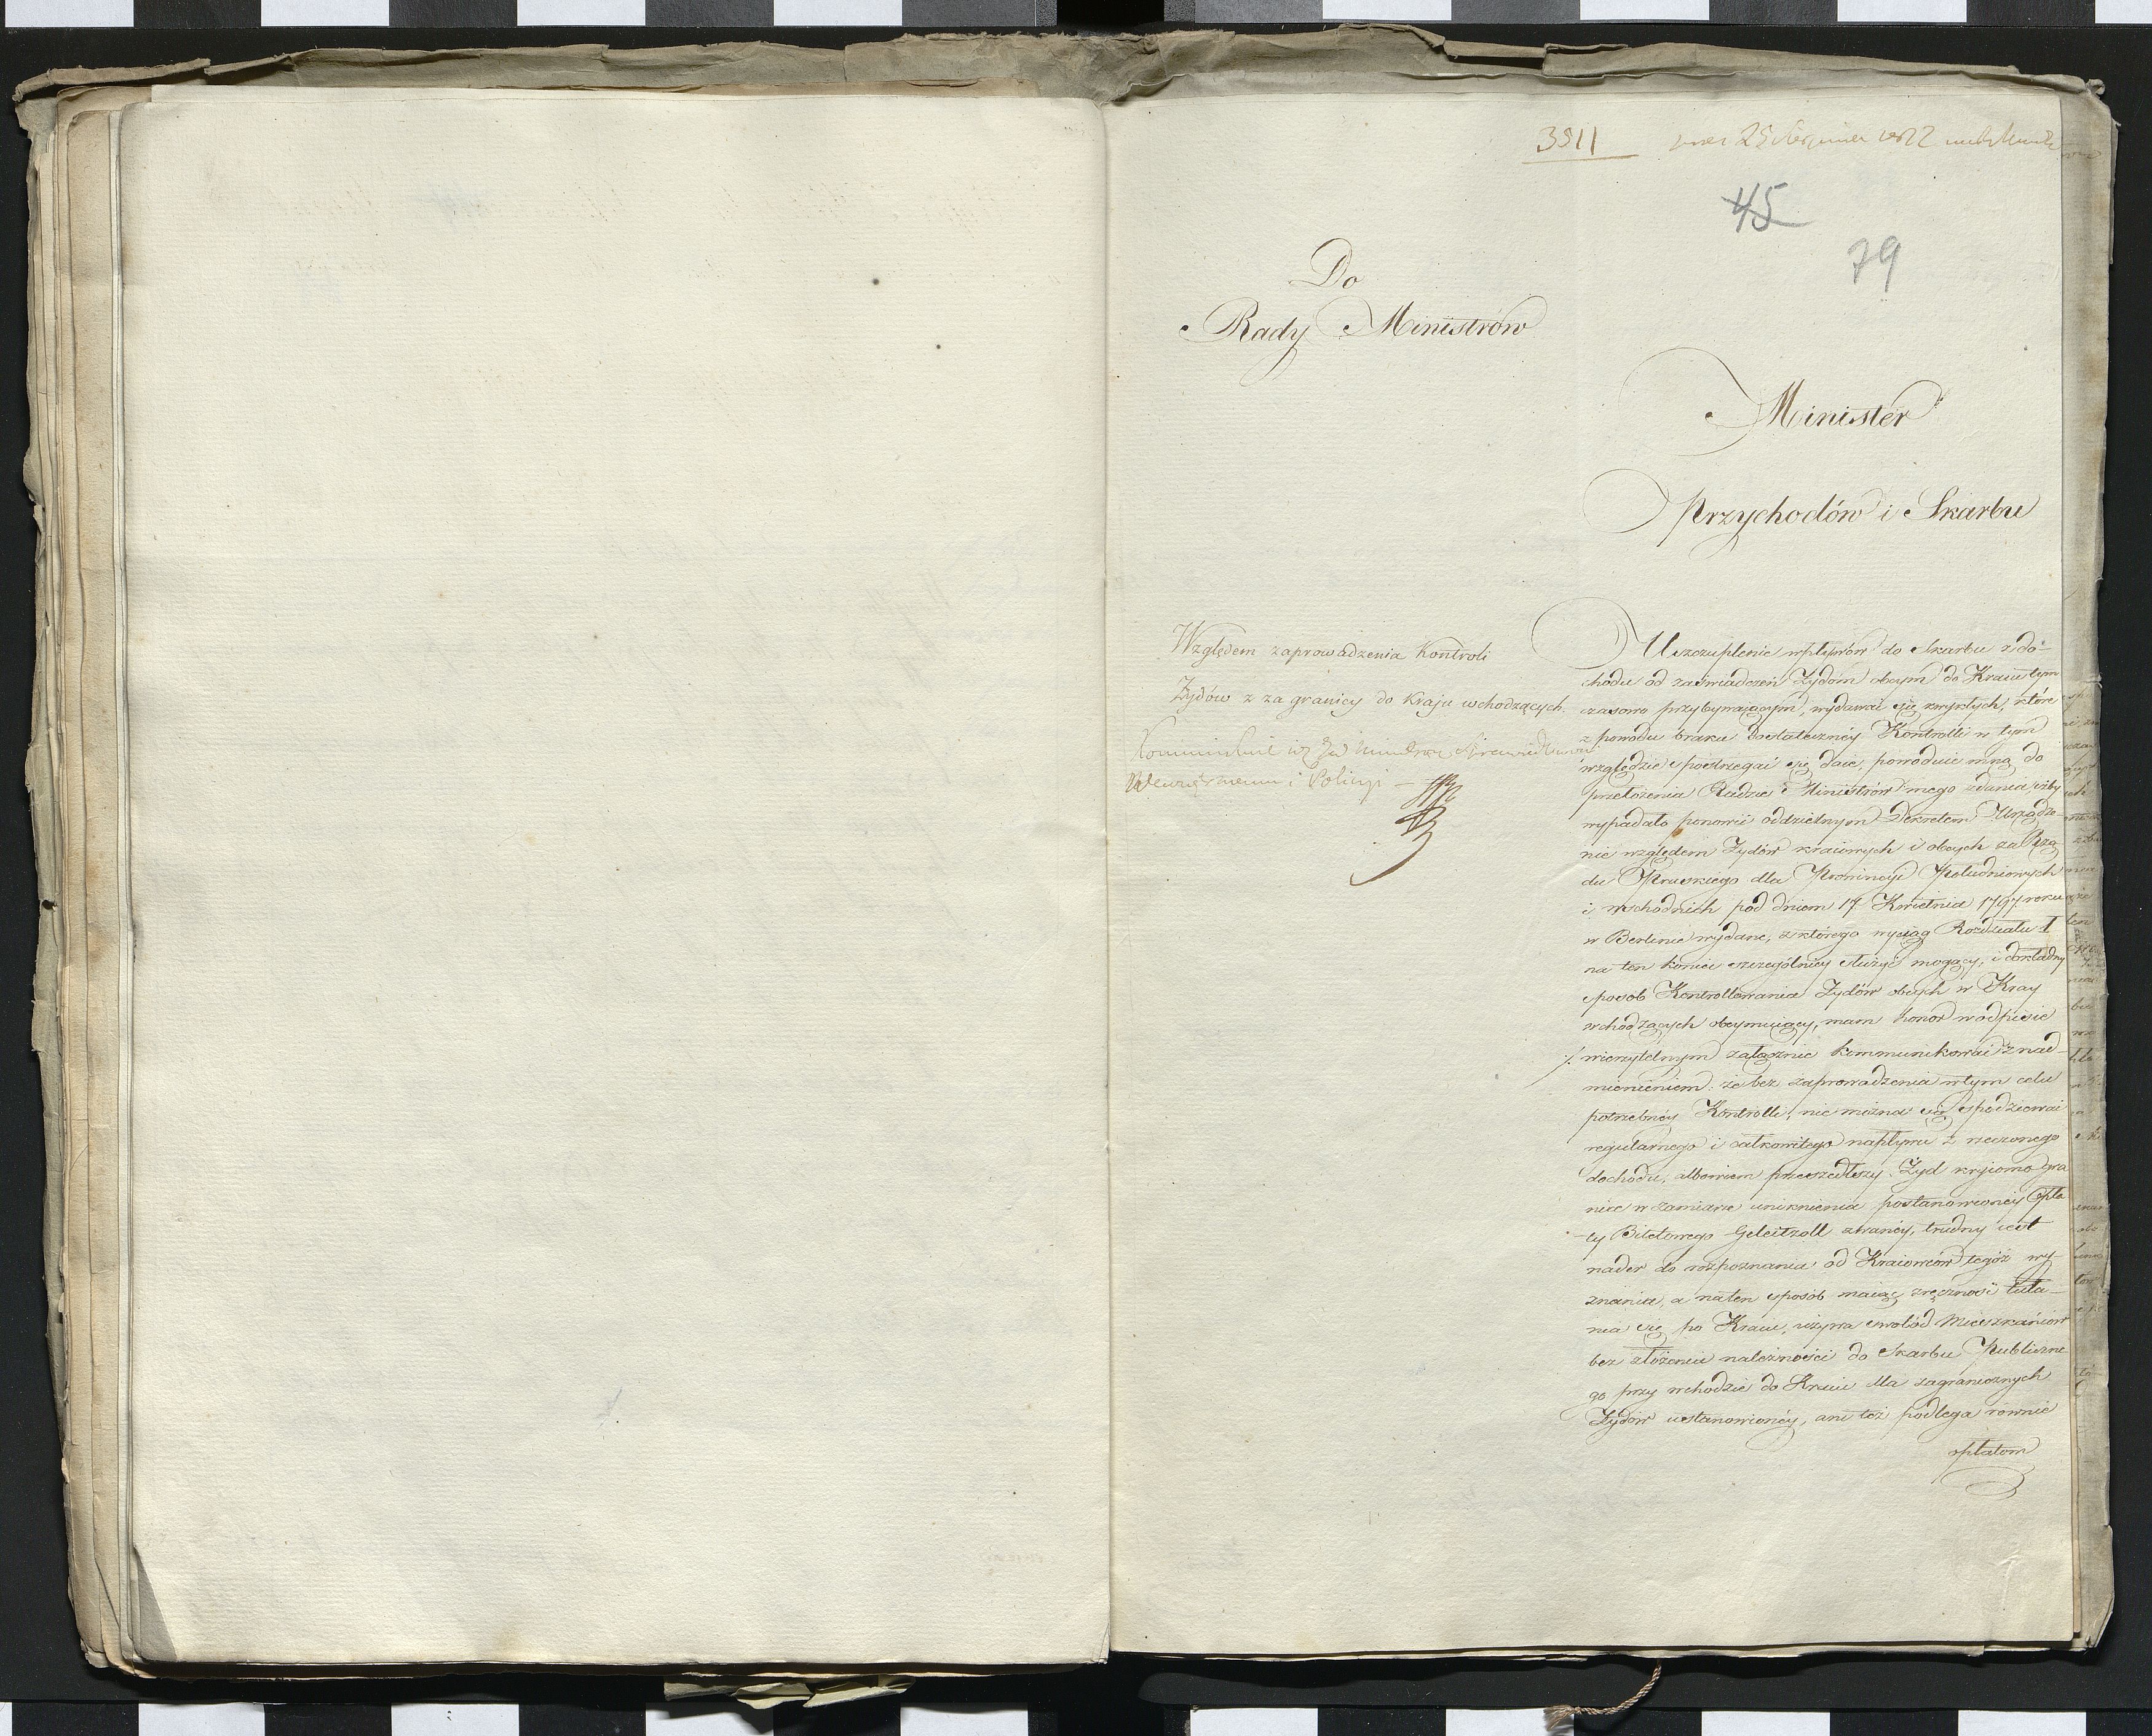 3511
25 1812
45
79
Do
Rady Ministrów
Minister
Przychodów i Skarbu
Względem zaprowadzenia Kontroli
Żydów z za granicy do Kraju wchodzących.
i Policyi —
Uszczuplenie wpływów do Skarbu z do-
chodu od zaświadczeń Żydom obcym do Kraiu tym
czasowo przybywaiącym, wydawać się zwykłych, które
z powodu braku dostateczney Kontrolli w tym
względzie spostrzegać się daie, powoduie mną do
przełożenia Radzie Ministrów mego zdania, iżby
wypadało ponowić oddzielnym Dekretem Urządze
nie względem Żydów kraiowych i obcych za Rzą
du Pruskiego dla Prowincyi Południowych
i wschodnich pod dniem 17 Kwietnia 1797 roku
w Berlinie wydane, z którego wyciąg Rozdziału 1
na ten koniec szczególniey służyć mogący, i dokładny
sposób Kontrollowania Żydów obcych w Kray
wchodzących obeymuiący, mam honor w odpisie
·/. wierzytelnym załącznie kommunikować z nad-
mienieniem: że bez zaprowadzenia w tym celu
potrzebney Kontrolli, nie można się spodziewać
regularnego i całkowitego napływu z rzeczonego
dochodu, albowiem przeszedłszy Żyd kryiomo gra
nice w zamiarze uniknienia postanowioney Opła
-ty Biletowego Geleitzoll zwaney, trudny iest
nader do rozpoznania od Kraiowców tegóż wy-
znania, a na ten sposób maiąc zręczność tuła-
nia się po Kraiu, używa swobód Mieszkańców
bez złożenia należności do Skarbu Publiczne
go przy wchodzie do Kraiu dla zagranicznych
Żydów ustanowioney, ani też podlega równie
opłatom